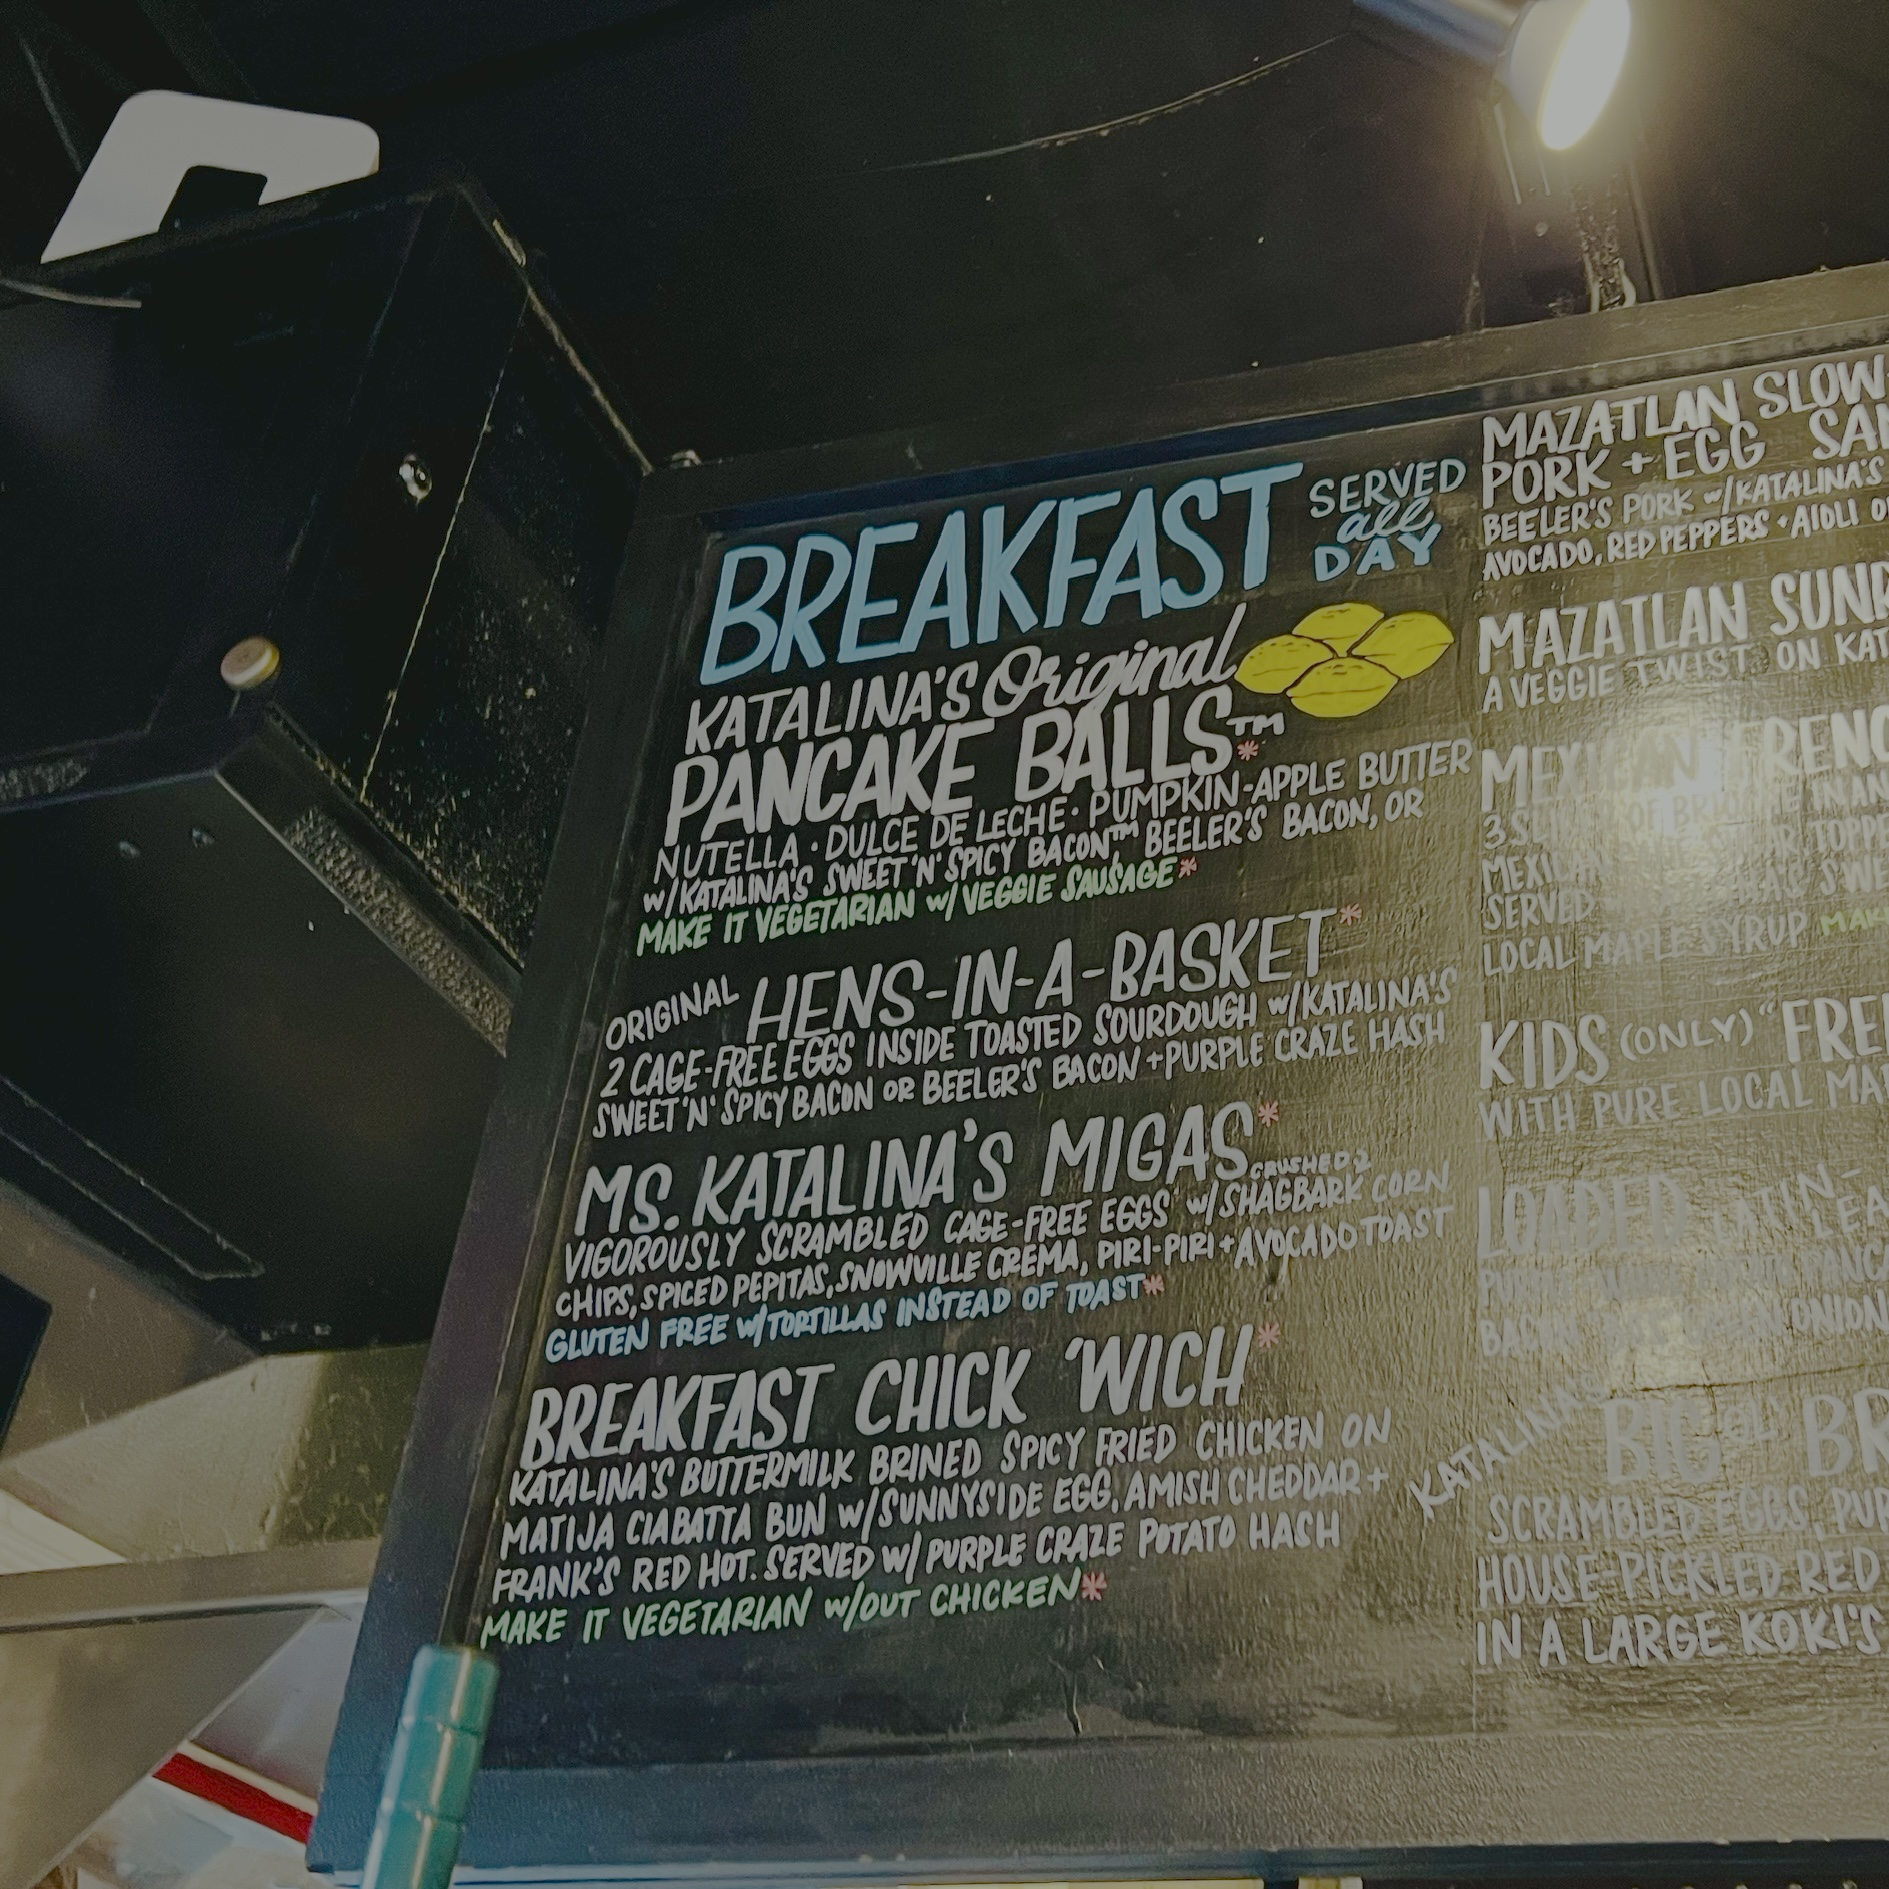 BREAKFAST
SERVED
all
DAY
KATALINA'S Original
PANCAKE BALLS™*
NUTELLA · DULCE DE LECHE · PUMPKIN-APPLE BUTTER
w/KATALINA'S SWEET 'N' SPICY BACON™ BEELER'S BACON, OR
MAKE IT VEGETARIAN w/ VEGGIE SAUSAGE*
ORIGINAL HENS-IN-A-BASKET*
2 CAGE-FREE EGGS INSIDE TOASTED SOURDOUGH w/KATALINA'S
SWEET 'N' SPICY BACON OR BEELER'S BACON + PURPLE CRAZE HASH
MS. KATALINA'S MIGAS*
CRUSHED
VIGOROUSLY SCRAMBLED CAGE-FREE EGGS w/SHAGBARK CORN
CHIPS, SPICED PEPITAS, SNOWVILLE CREMA, PIRI-PIRI + AVOCADO TOAST
GLUTEN FREE w/TORTILLAS INSTEAD OF TOAST*
BREAKFAST CHICK 'WICH*
KATALINA'S BUTTERMILK BRINED SPICY FRIED CHICKEN ON
MATIJA CIABATTA BUN w/SUNNYSIDE EGG, AMISH CHEDDAR +
FRANK'S RED HOT. SERVED w/ PURPLE CRAZE POTATO HASH
MAKE IT VEGETARIAN w/OUT CHICKEN*
MAZATLAN SLOW
PORK + EGG SAN
BEELER'S PORK w/KATALINA'S
AVOCADO, RED PEPPERS + AIOLI
MAZATLAN SUNR
A VEGGIE TWIST ON KAT
MEXICAN FRENC
3
MEXICAN
SERVED
LOCAL MAPLE SYRUP MAK
KIDS (ONLY) "FREE
WITH PURE LOCAL MA
LOADED LATIN-
BACON ONION
KATALINA'S BIG OL' BR
SCRAMBLED EGGS, PUR
HOUSE-PICKLED RED
IN A LARGE KOKI'S